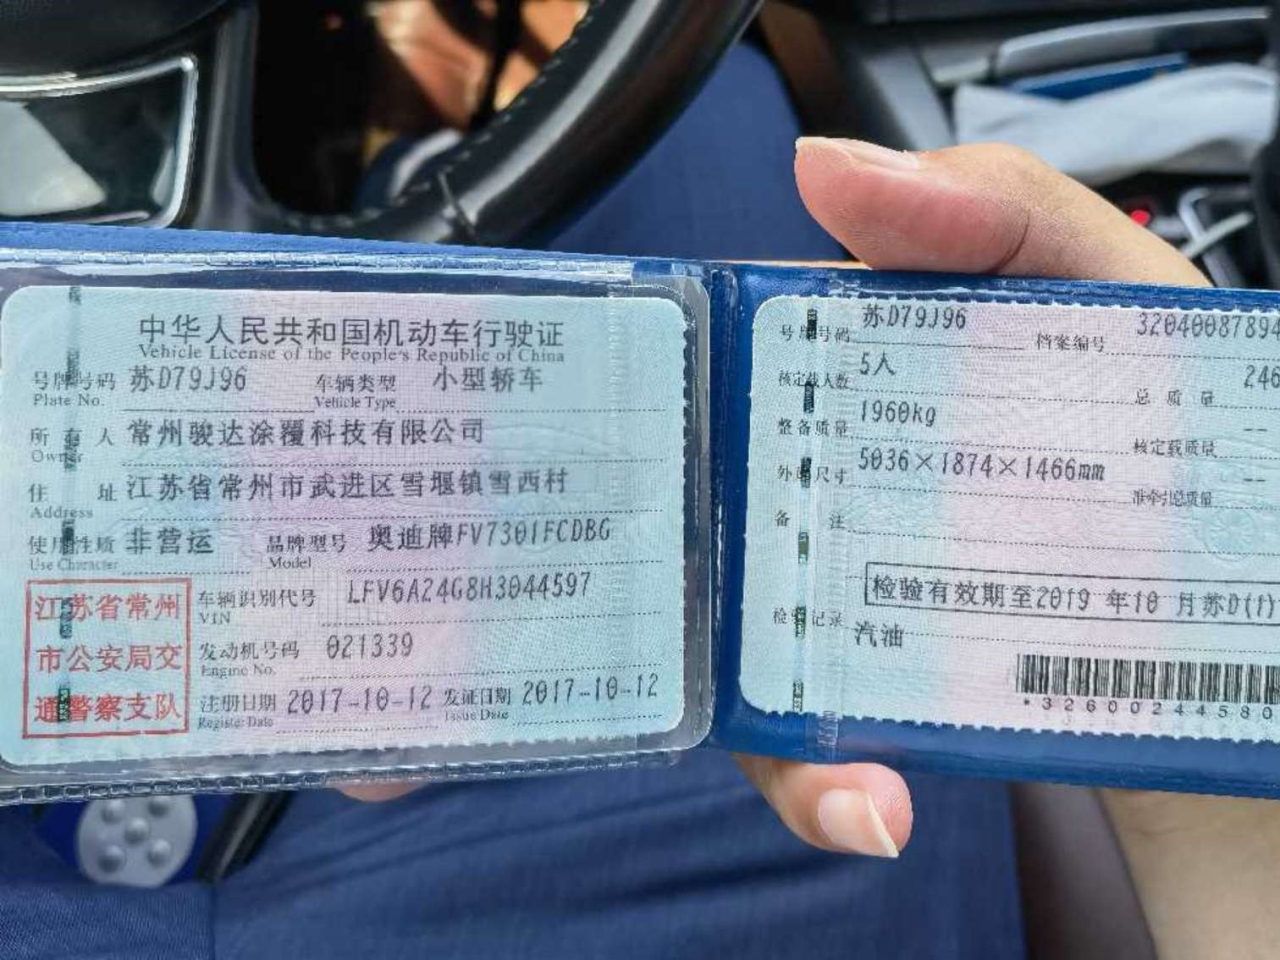 中华人民共和国机动车行驶证
Vehicle License of the People's Republic of China
号牌号码 苏D79J96 车辆类型 小型轿车
Plate No. Vehicle Type
所有人 常州骏达涂覆科技有限公司
Owner
住址 江苏省常州市武进区雪堰镇雪西村
Address
使用性质 非营运 品牌型号 奥迪牌FV7301FCDBG
Use Character Model
江苏省常州
市公安局交
通警察支队
车辆识别代号 LFV6A24G8H3044597
VIN
发动机号码 021339
Engine No.
注册日期 2017-10-12 发证日期 2017-10-12
Register Date Issue Date
号牌号码 苏D79J96 档案编号 32040087894
核定载人数 5人 总质量 246
整备质量 1960kg 核定载质量 --
外廓尺寸 5036×1874×1466mm 准牵引总质量 --
备注
检验有效期至2019 年10 月苏D(1)
检验记录
汽油
*32600244580